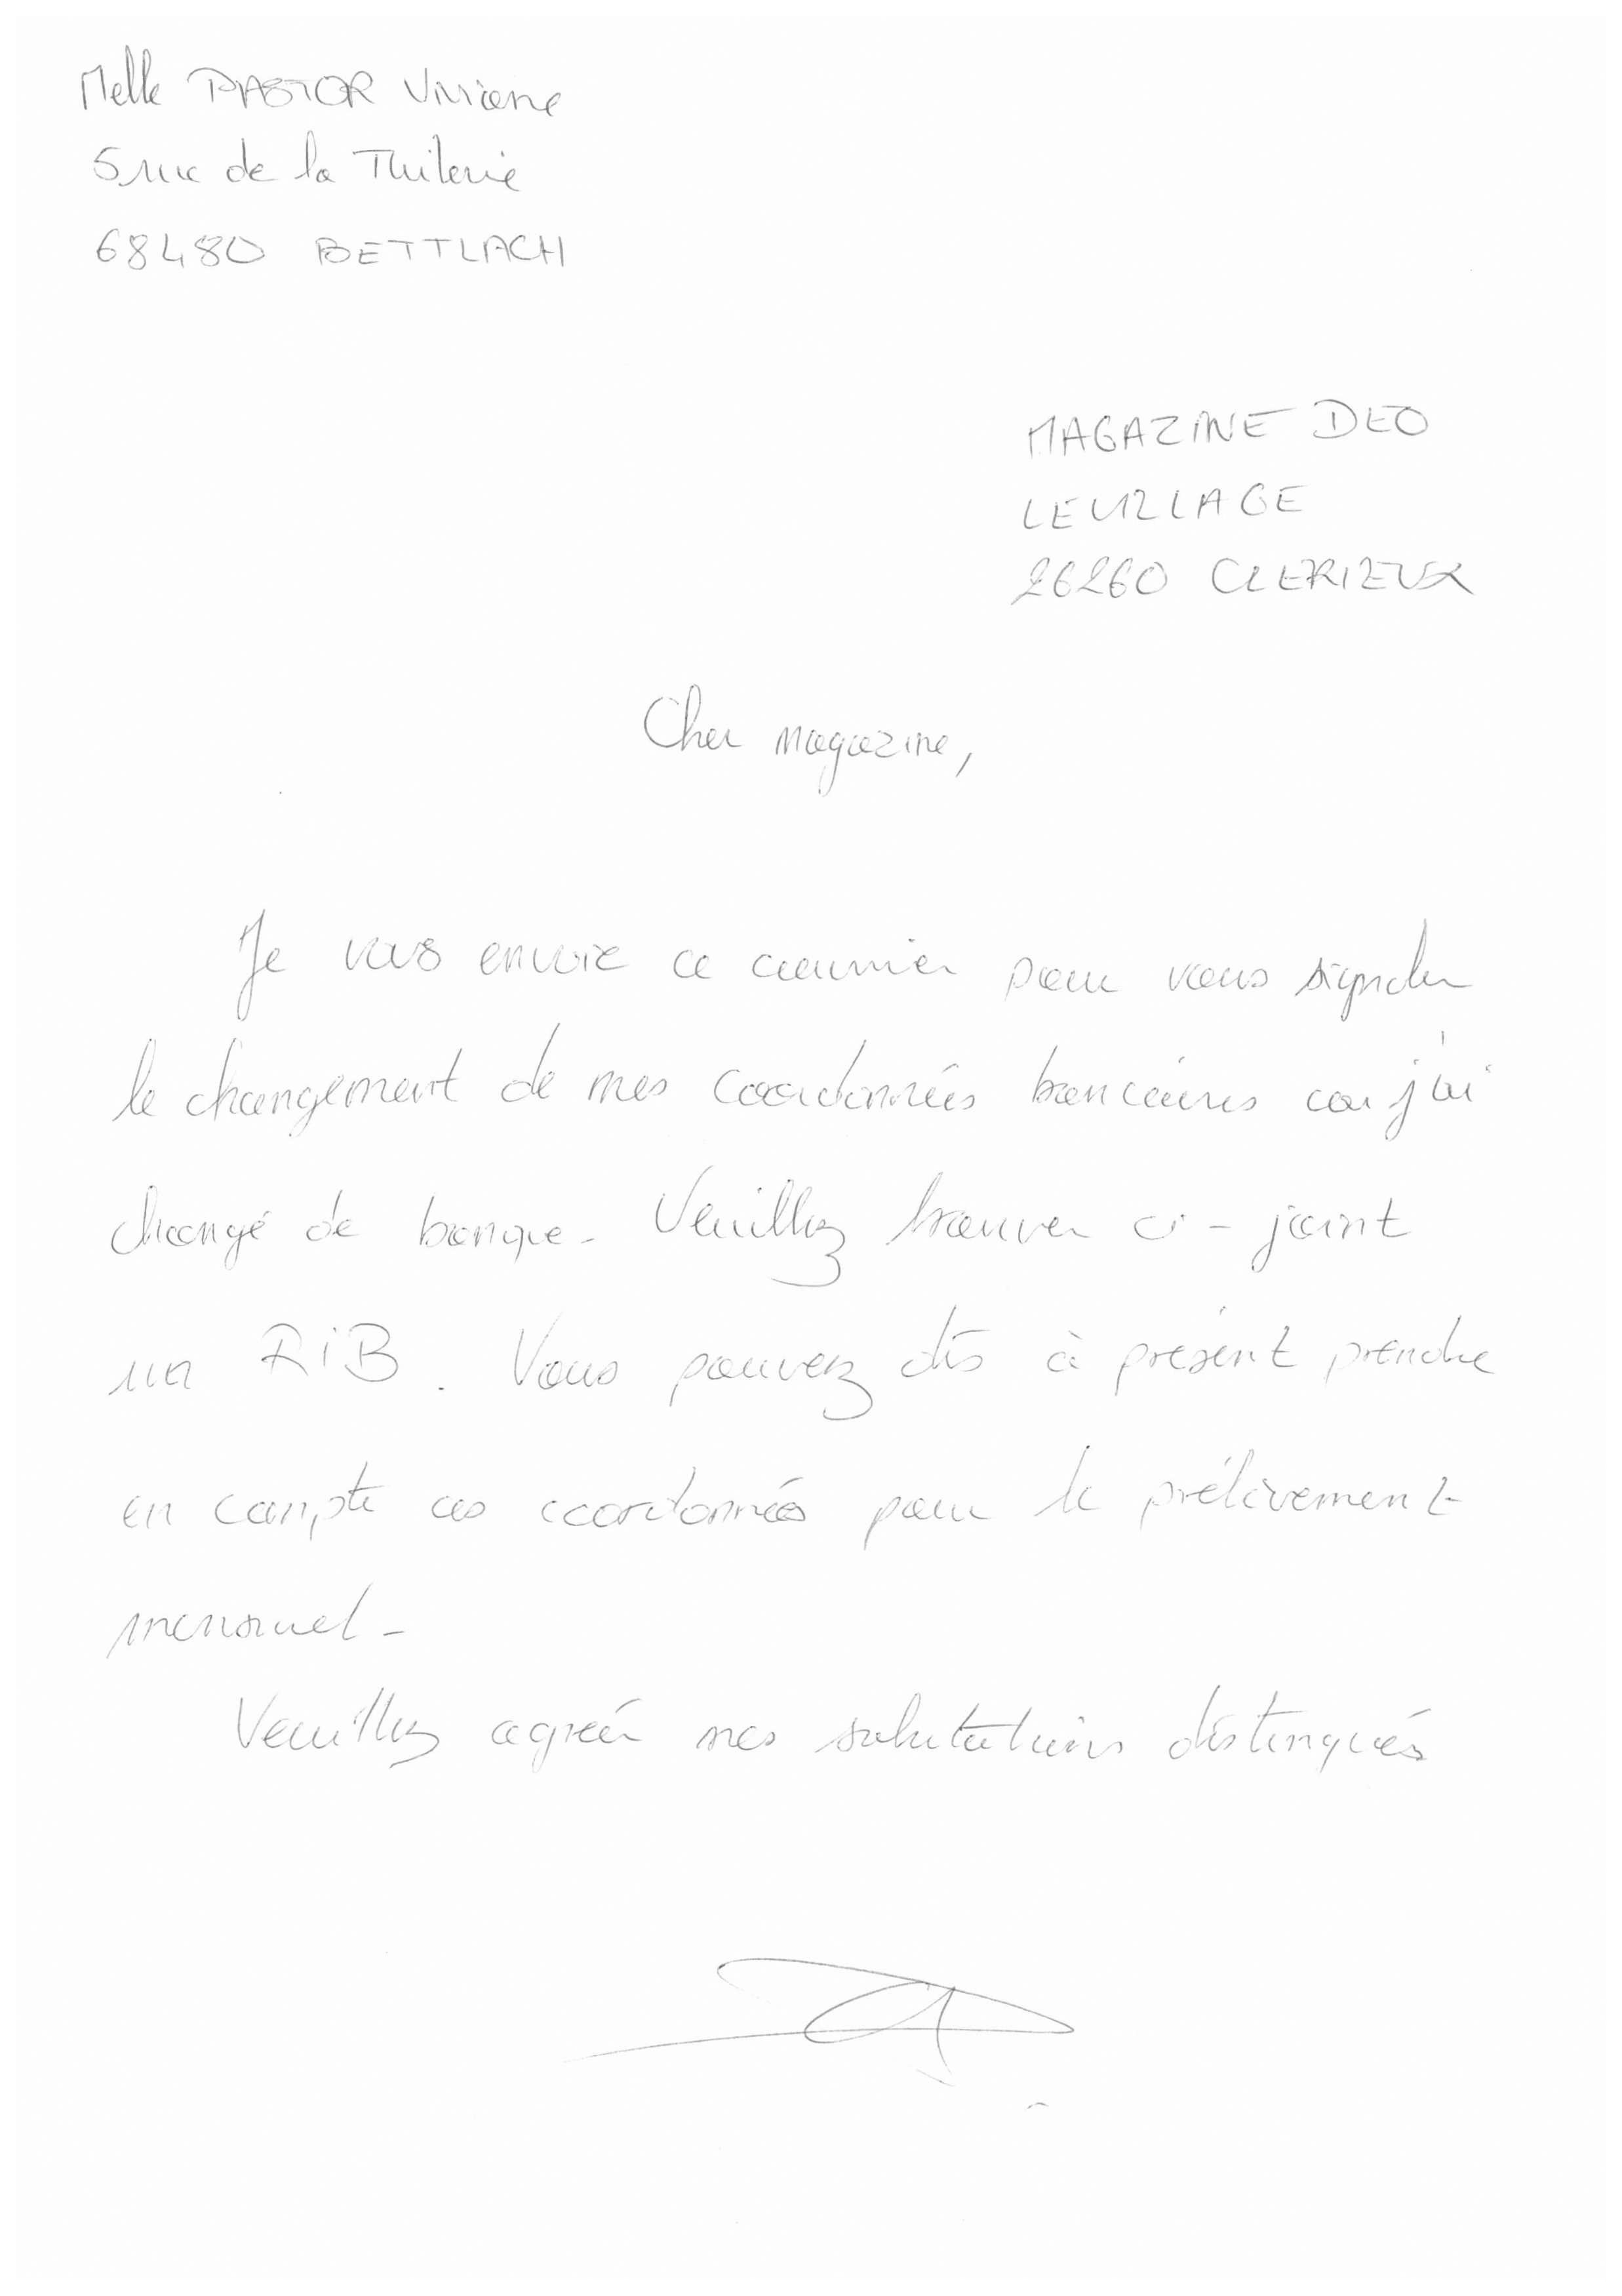 Melle PASTOR Viviane
5 rue de la Thilerie
68480 BETTLACH
MAGAZINE DEO
LE VILLAGE
26260 CLERIEUX
Cher magazine,
Je vous envoie ce courrier pour vous signaler
le changement de mes coordonnées bancaires car j'ai
changé de banque. Veuillez trouver ci-joint
un RIB. Vous pouvez dès à présent prendre
en compte ces coordonnées pour le prélèvement
mensuel.
Veuillez agréer mes salutations distinguées